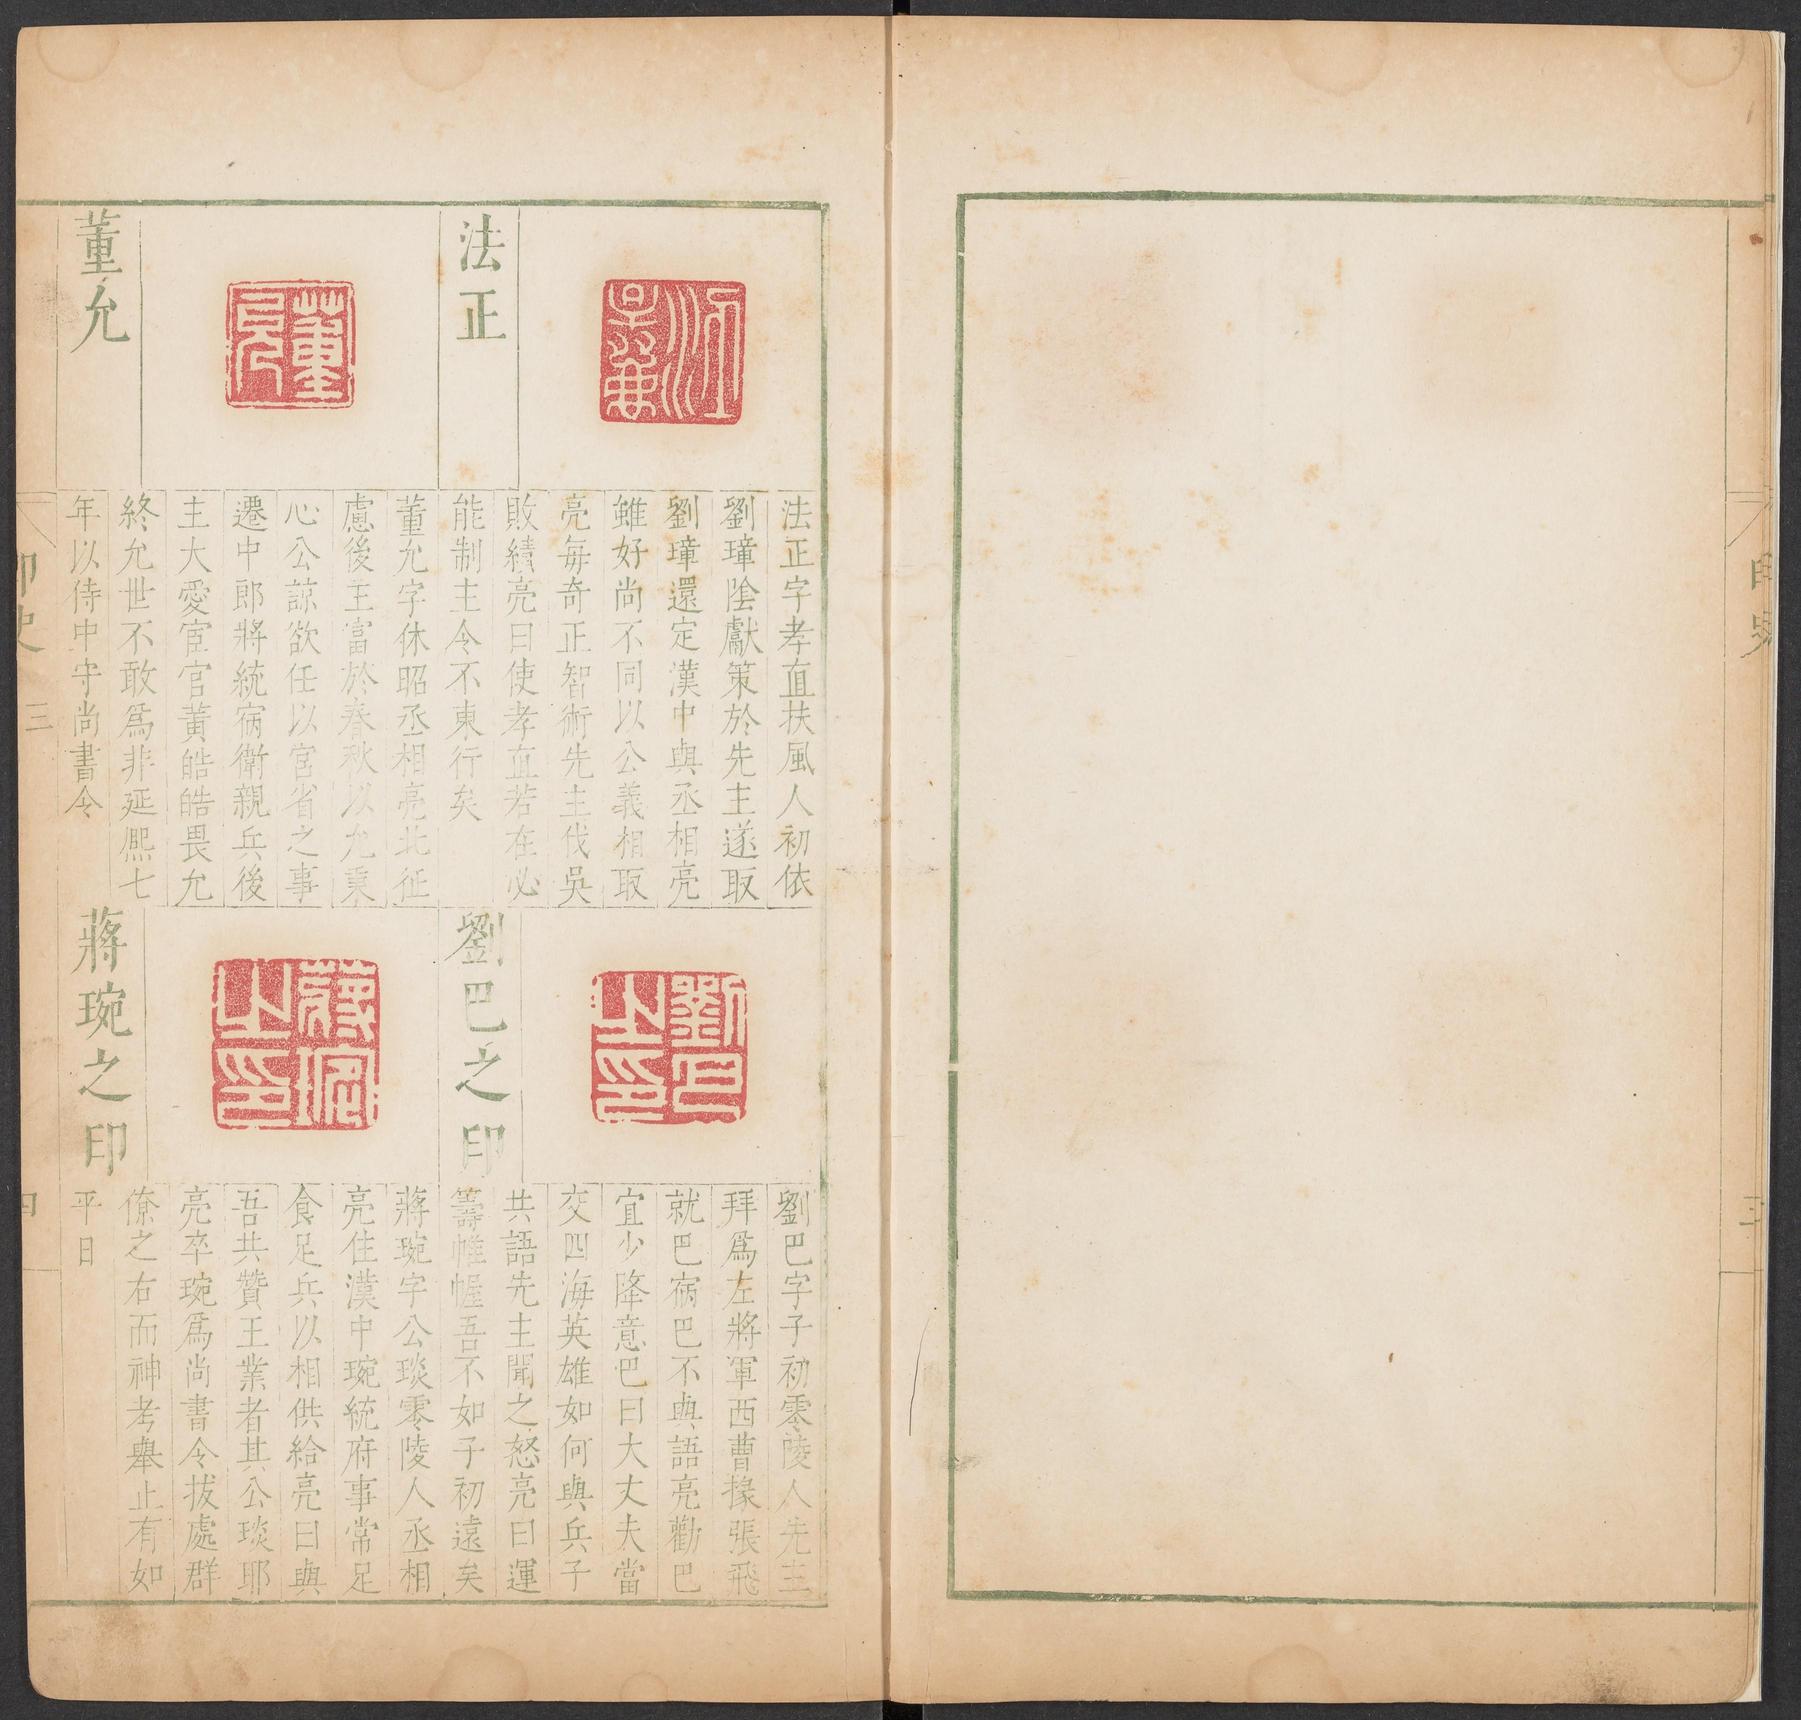 法正
法正字孝直扶風人初依
劉璋陰獻策於先主遂取
劉璋還定漢中與丞相亮
雖好尚不同以公義相取
亮每奇正智術先主伐吳
敗績亮曰使孝直若在必
能制主令不東行矣
董允
董允字休昭丞相亮北征
慮後主富於春秋以允秉
心公諒欲任以宮省之事
遷中郎將統宿衛親兵後
主大愛宦官黃皓皓畏允
終允世不敢爲非延熈七
年以侍中守尚書令
劉巴之印
劉巴字子初零陵人先主
拜爲左將軍西曹掾張飛
就巴宿巴不與語亮勸巴
宜少降意巴曰大丈夫當
交四海英雄如何與兵子
共語先主聞之怒亮曰運
籌帷幄吾不如子初遠矣
蔣琬之印
蔣琬字公琰零陵人丞相
亮住漢中琬統府事常足
食足兵以相供給亮曰與
吾共贊王業者其公琰耶
亮卒琬爲尚書令拔處群
僚之右而神考舉止有如
平日
印史
三
四